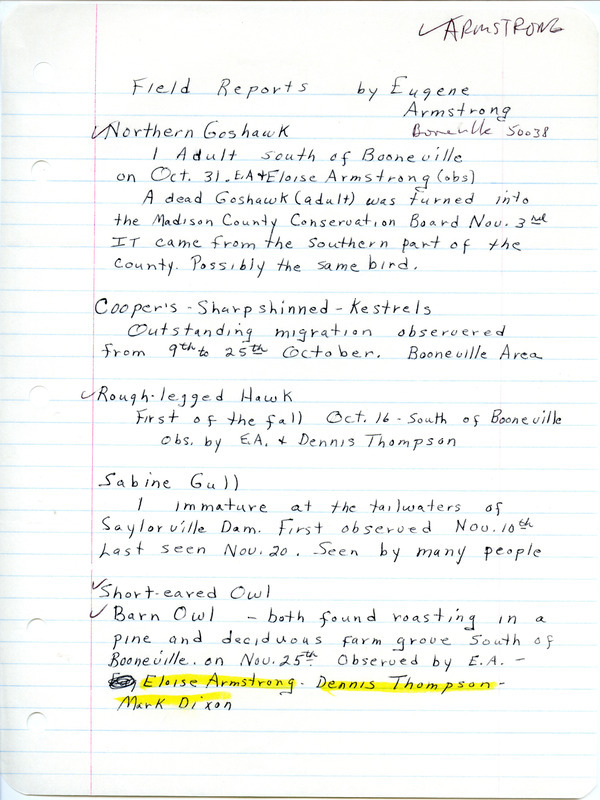 ✓ARMSTRONG
Field Reports by Eugene
Armstrong
✓Northern Goshawk Booneville 50038
1 Adult south of Booneville
on Oct. 31. E.A + Eloise Armstrong (obs)
A dead Goshawk (adult) was turned into
the Madison County Conservation Board Nov. 3rd
IT came from the southern part of the
county. Possibly the same bird.
Cooper's - Sharpshinned - Kestrels
Outstanding migration observered
from 9th to 25th October. Booneville Area
✓Rough-legged Hawk
First of the fall Oct. 16 - South of Booneville
obs. by E.A. & Dennis Thompson
Sabine Gull
1 immature at the tailwaters of
Saylorville Dam. First observed Nov. 10th
Last seen Nov. 20. Seen by many people
✓Short-eared Owl
✓Barn Owl - both found roasting in a
pine and deciduous farm grove South of
Booneville. on Nov. 25th Observed by E.A. -
Eloise Armstrong. Dennis Thompson -
Mark Dixon